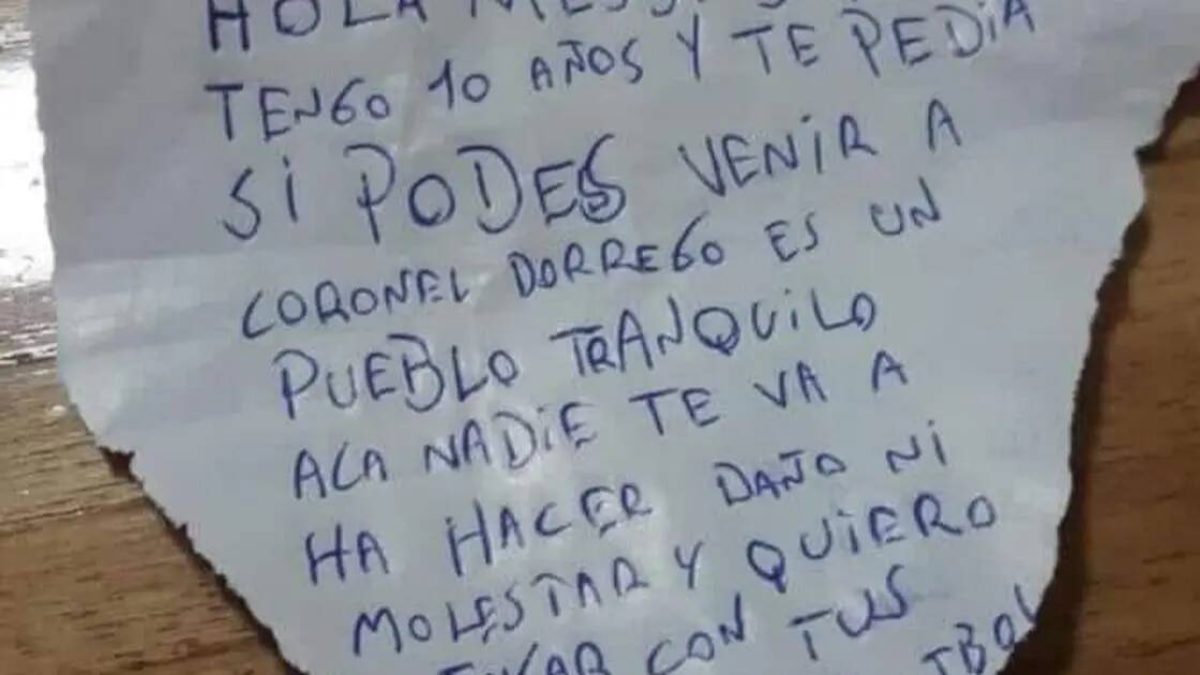 HOLA MESSI
TENGO 10 AÑOS Y TE PEDIA
SI PODES VENIR A
CORONEL DORREGO ES UN
PUEBLO TRANQUILO
ACA NADIE TE VA A
HA HACER DAÑO NI
MOLESTAR Y QUIERO
CON TUS